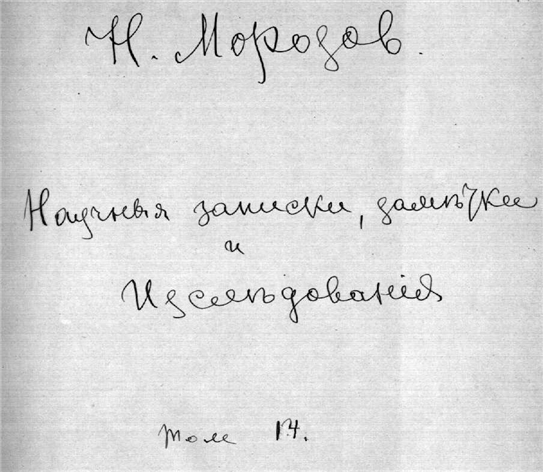 Н. Морозов.
Научныя записки, замѣчки
и
Изслѣдованія
том 14.